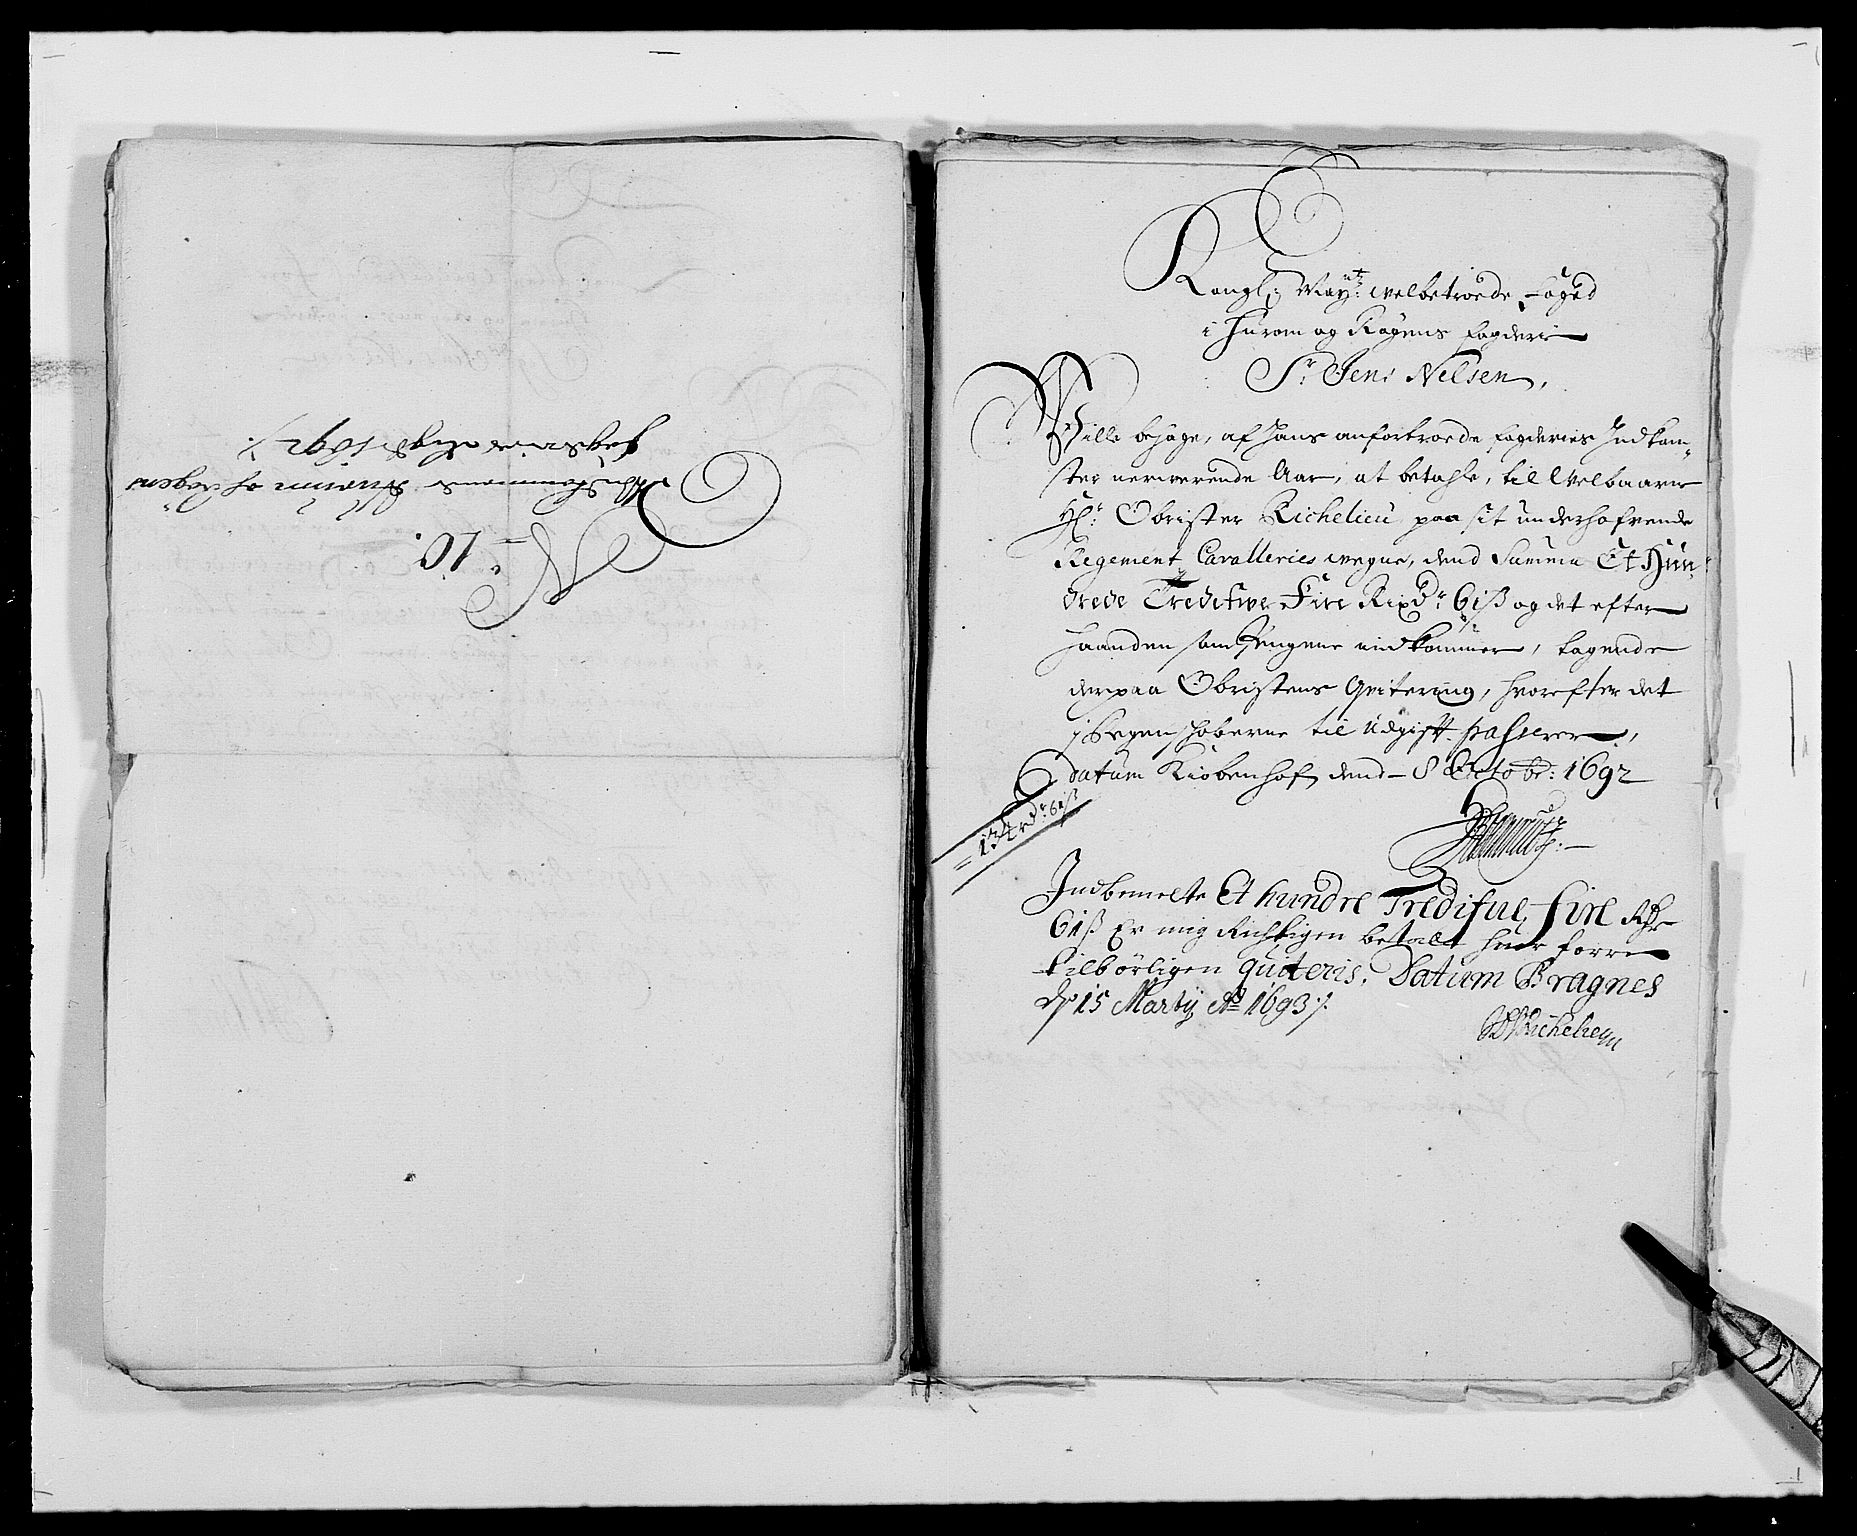 No 10.
af Hurum og Røgens
fogderie 1692 ⁒
Kongl: Mayttz: welbetroede Foged
i Hurom og Røgens fogderie
Sr. Jens Nelsen,
Wille behage, af hans anfortroede fogderies Indkom-
ster nerwerende Aar, at betahle, til Welbaarne
Hr: Obrister Richelieu paa sit underhafvende
Regement Cavalleries wegne, dend Summa Et Hun-
drede Tredifwe Fire Rixdr 61 ß og det efter
haanden som Pengene indkommer, tagende
derpaa Obristens Qvitering, hvorefter det
i Regenskaberne til Udgift passerer,
Datum Kiøbenhafn dend 8 Octobr: 1692
= 134 rdr 61 ß
Indbemelte Et hundre Tredifue, fire Rdr
61 ß Er mig Richtigen betalt huor forre
tilbørligen quiteris, Datum Bragnes
dn 15 Martij Ao 1693 ⁒
Richelieu